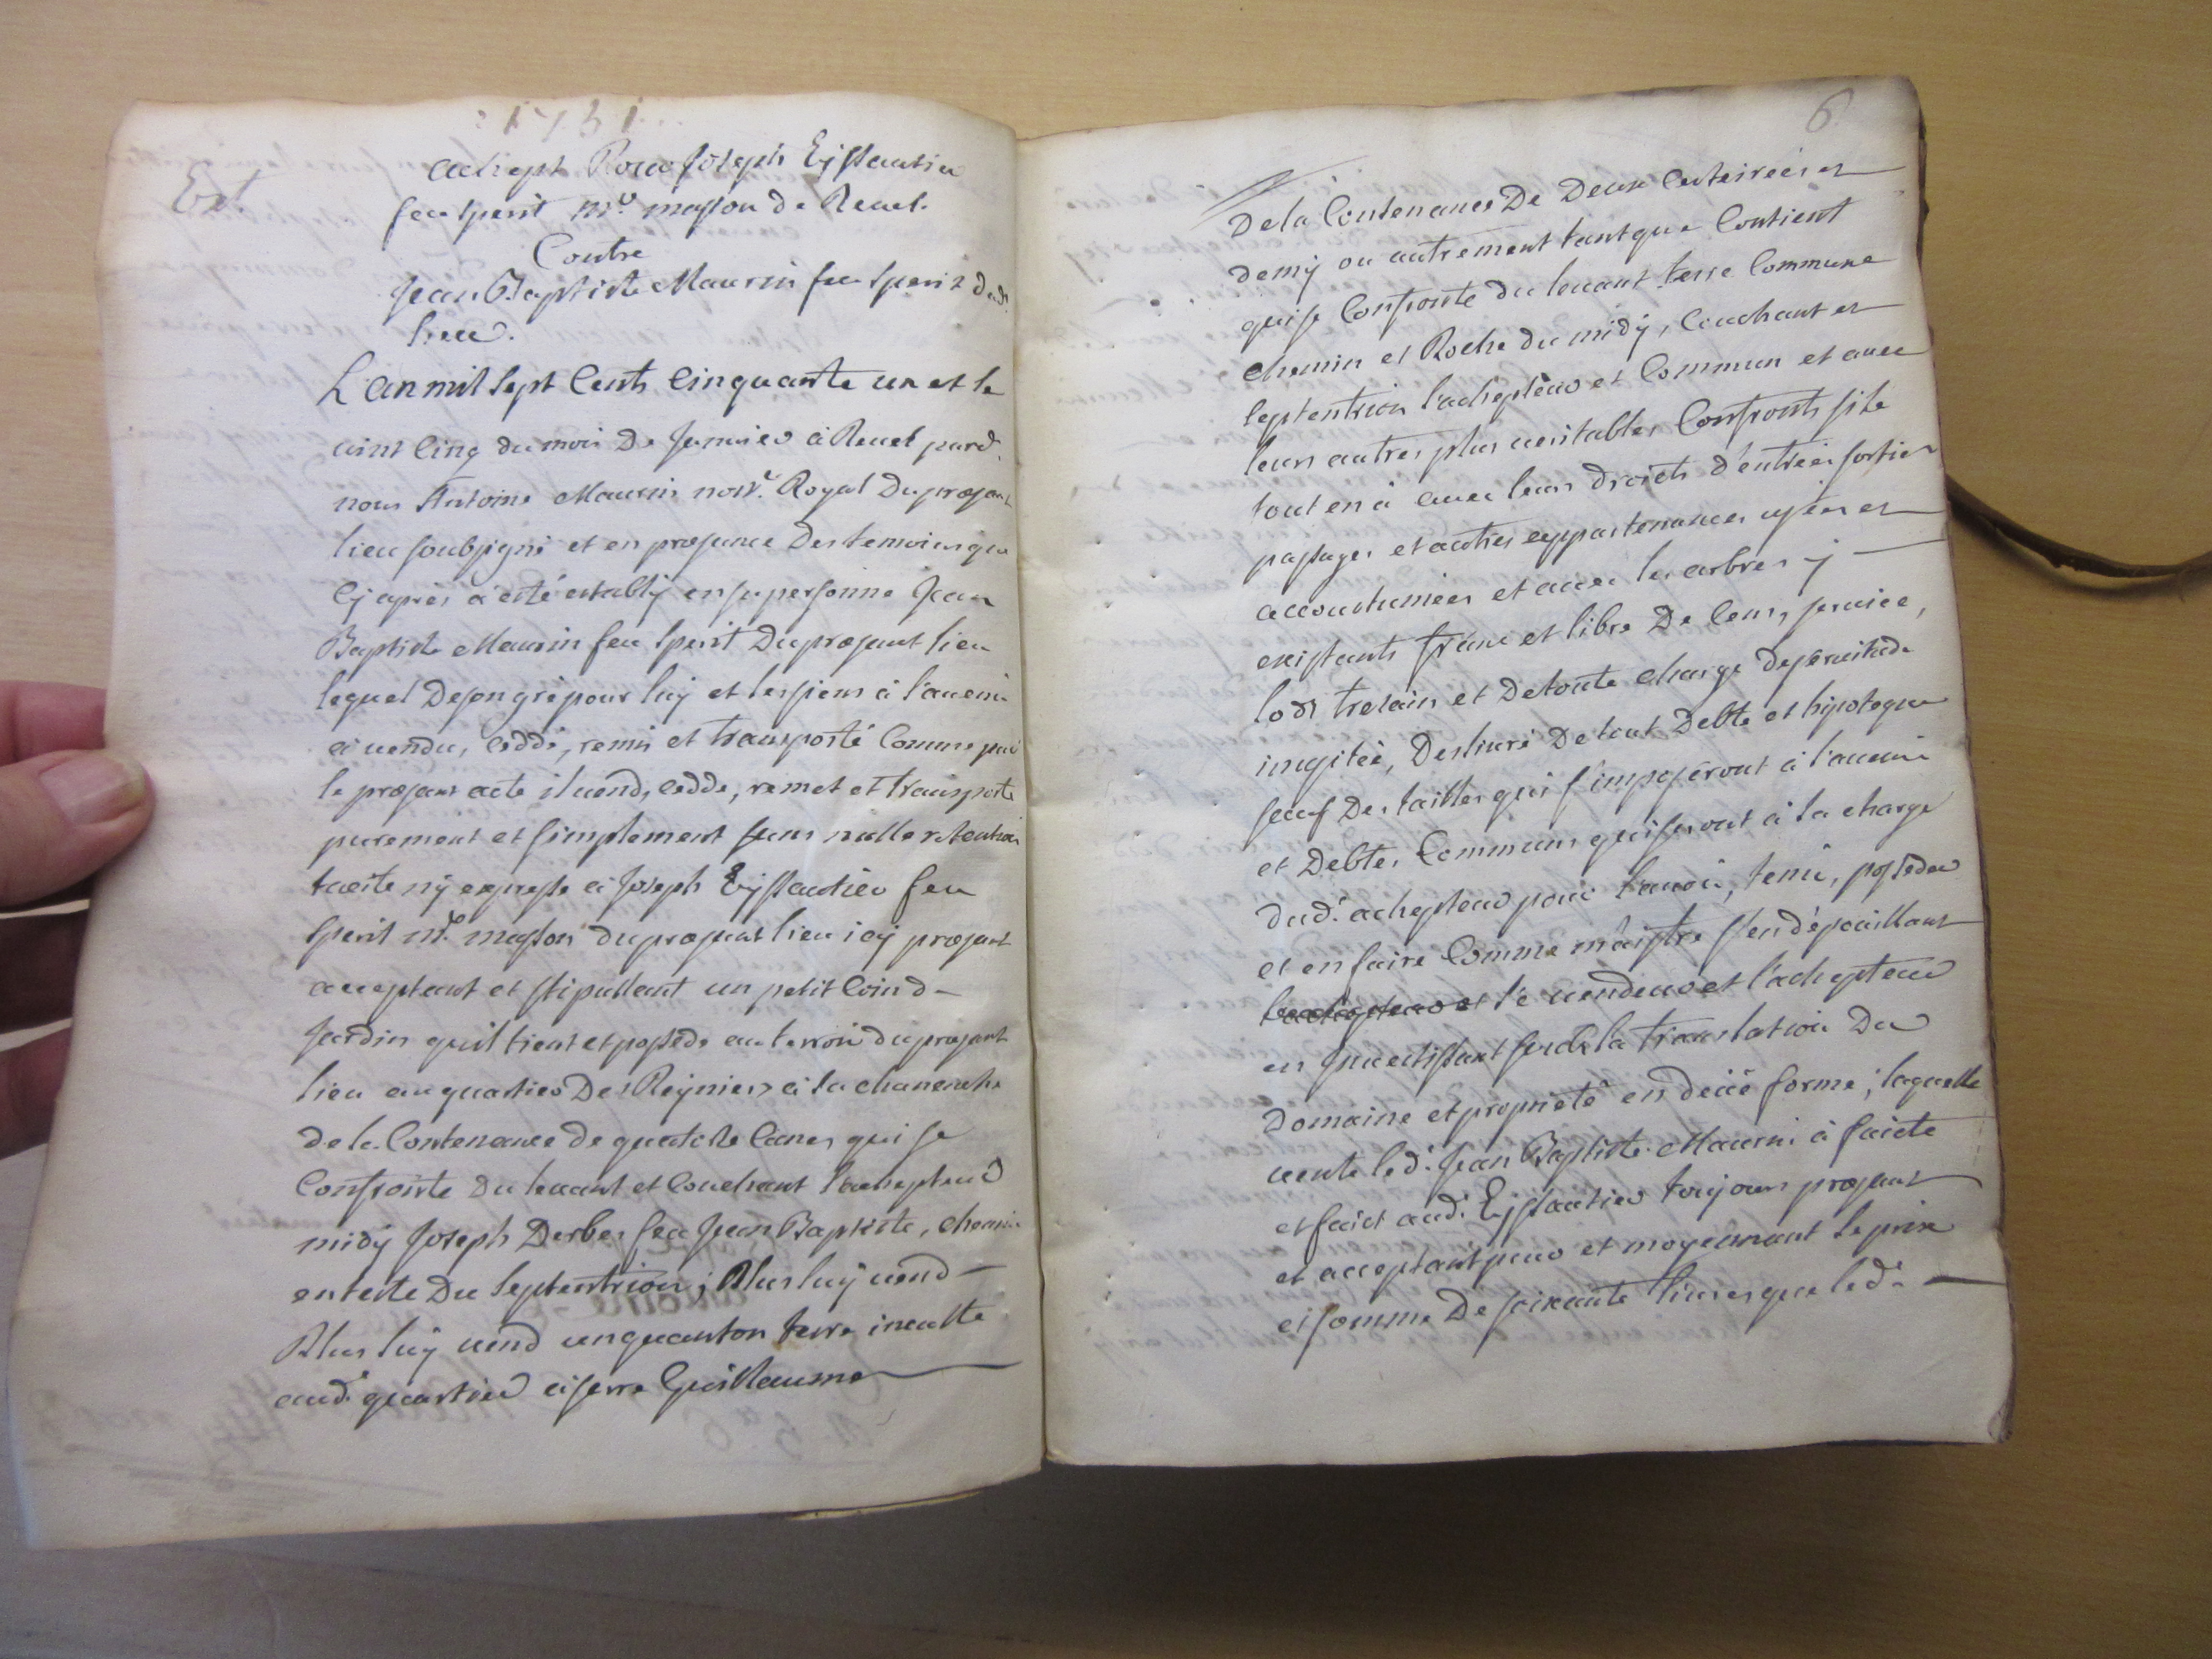 1751
Ext.
achept pour Joseph Eyssautier
feu Sperit mre masson de Revel.
Contre
Jean Baptiste Maurin feu Sperit dud.
lieu.
L'an mil sept cents cinquante un et le
vint cinq du mois de Janvier à Revel pard.
nous Antoine Maurin nore. Royal du præsant
lieu soubsigné et en præsance des temoins que
cy après a esté establÿ en sa personne Jean
Baptiste Maurin feu Sperit du præsant lieu
lequel de son gré pour luÿ et les siens à l'avenir
à vendu, ceddé, remis et transporté comme par
le præsant acte il vend, cedde, remet et transporte
purement et simplement sans nulle retention
tacite nÿ expresse à Joseph Eÿssautier feu
Sperit mre. masson du præsant lieu icÿ præsant
acceptant et stipullant un petit coin d-
Jardin quil tient et possede au terroir du præsant
lieu au quartier Des Reÿniers à la chanenche
de la Contenance de quatorze Canes qui se
Confronte du levant et Couchant l'achepteur
midÿ Joseph Derbes feu Jean Baptiste, chemin
en teste du septentrion; Plus luÿ vend
Plus luÿ vend un quanton terre inculte
aud. quartier à serre Guillaume
6
De la Contenance De Deux Cesteirées et
demÿ ou autrement tant que Contient
qui se Confronte du levant terre Commune
chemin et Roche du midÿ, Couchant et
septentrion l'achepteur et Commun et avec
leurs autres plus veritables Confronts si le
tout en à avec leurs droits d'entrées sorties
passages et autres appartenances usées et
accoustumées et avec les arbres ÿ
existants franc et libre De Cens, service,
lods trezain et De toute charge De servitude
imposée, Deslivré De tout Debte et hipoteque
sauf Des tailles qui s'imposeront à l'avenir
et Debtes Communs qui seront à la charge
dud. achepteur pour l'avoir, tenir, posseder
et en faire Comme maistre s'en dépouillant
l'achepteur et le vendeur et l'achepteur
en investissant sur la translation Du
Domaine et proprieté en deüe forme; laquelle
vente led. Jean Baptiste Maurin à faicte
et faict aud. Eÿssautier toujours præsant
et acceptant pour et moyennant le prix
et somme De soixante livres que led.